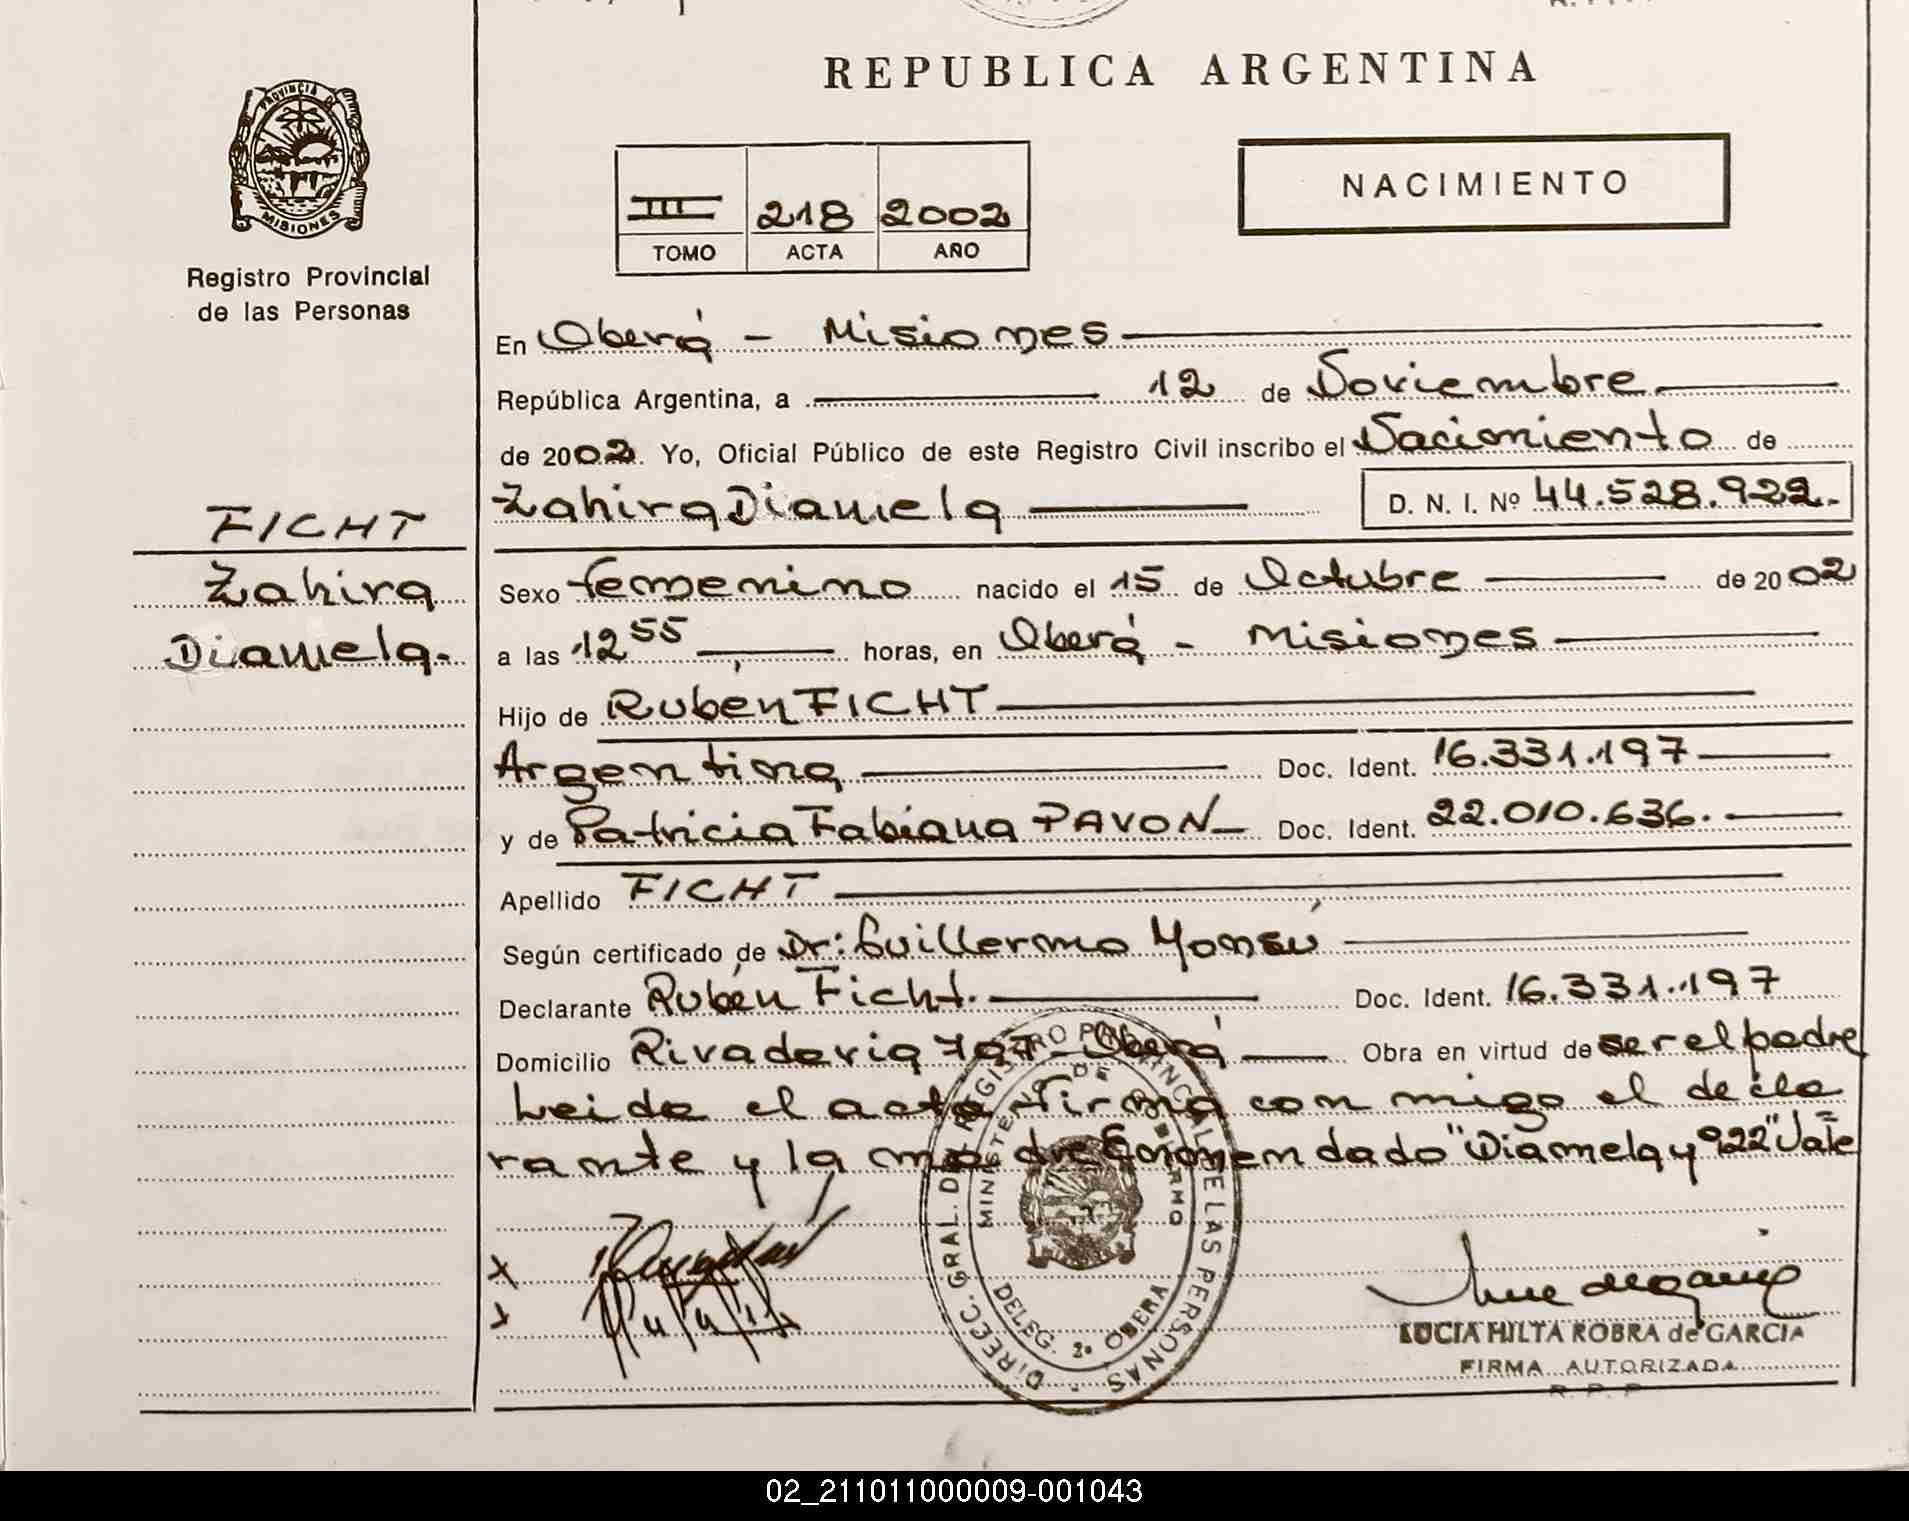 REPUBLICA ARGENTINA
PROVINCIA DE
MISIONES
Registro Provincial
de las Personas
III 218 2002
TOMO ACTA AÑO
NACIMIENTO
En Oberá - Misiones
República Argentina, a 12 de Noviembre
de 2002. Yo, Oficial Público de este Registro Civil inscribo el Nacimiento de
Zahira Diamela D. N. I. Nº 44.528.922.
FICHT
Zahira
Diamela.
Sexo femenino nacido el 15 de Octubre de 2002
a las 12 55 horas, en Oberá - Misiones
Hijo de Rubén FICHT
Argentina Doc. Ident. 16.331.197
y de Patricia Fabiana PAVON Doc. Ident. 22.010.636.
Apellido FICHT
Según certificado de Dr: Guillermo Yonsú
Declarante Rubén Ficht. Doc. Ident. 16.331.197
Domicilio Rivadavia 797 - Oberá Obra en virtud de ser el padre
Leida el acta firma con migo el decla
rante y la madre Enmendado "Diamela y 922" Vale
x
x
DIREC. GRAL. DE REGISTRO PROVINCIAL DE LAS PERSONAS
MINISTERIO DE GOBIERNO
DELEG. 2ª OBERA
LUCIA HILTA ROBRA de GARCIA
FIRMA AUTORIZADA
R. P. P
02_211011000009-001043